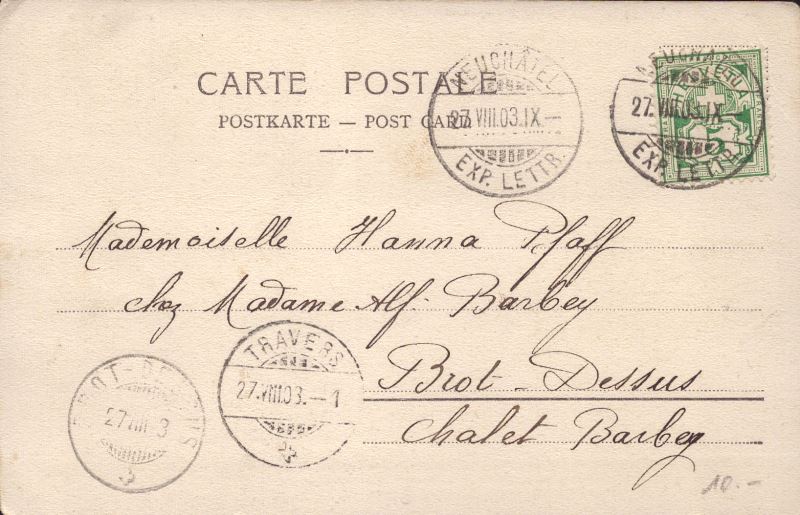 CARTE POSTALE
POSTKARTE — POST CARD
NEUCHÂTEL
27.VIII.03.IX —
EXP. LETTR.
NEUCHÂTEL
27.VIII.03.IX —
EXP. LETTR.
5
Mademoiselle Hanna Pfaff
chez Madame Alf. Barbey
Brot-Dessus
Chalet Barbey
TRAVERS
27.VIII.03.— 1
BROT-DESSUS
27 VIII 3
10.-